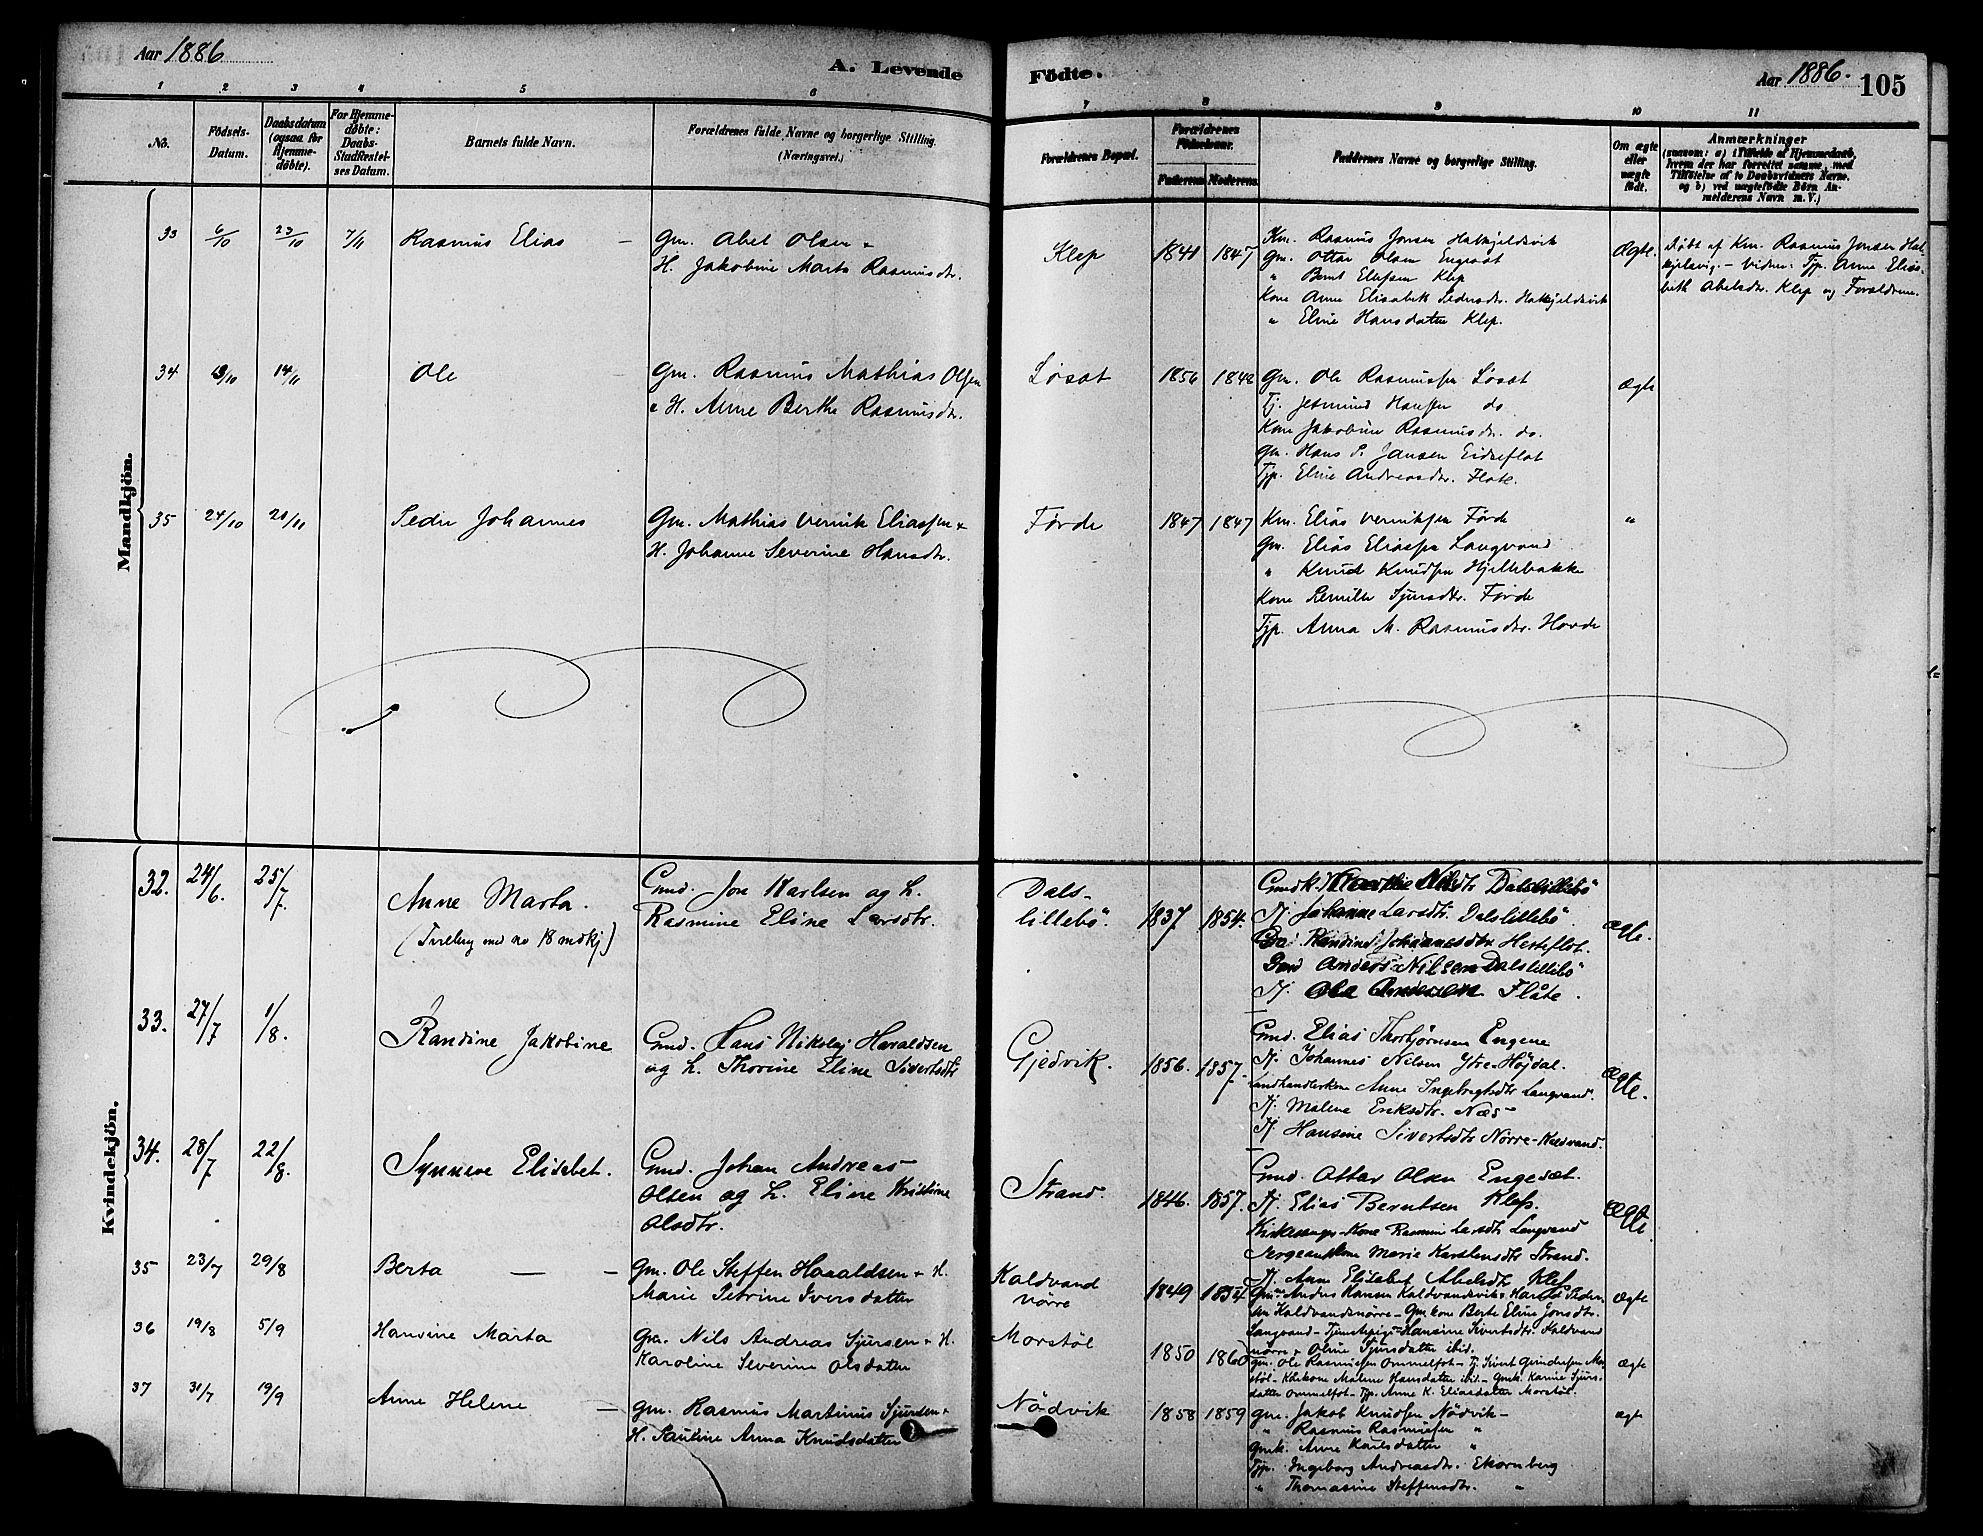 Aar 1886
A. Levende
Födte.
Aar 1886.
105
1 2 3 4 5 6 7 8 9 10 11
No.
Födsels-
Datum.
Daabsdatum
(ogsaa for
Hjemme-
döbte).
For Hjemme-
döbte:
Daabs-
Stadfæstel-
ses Datum.
Barnets fulde Navn.
Forældrenes fulde Navne og borgerlige Stilling.
(Næringsvei.)
Forældrenes Bopæl.
Forældrenes
Födselsaar.
Faderens. Moderens.
Faddernes Navne og borgerlige Stilling.
Om ægte
eller
uægte
født.
Anmærkninger
(saasom: a) i Tilfælde af Hjemmedaab,
hvem der har forrettet samme, med
Tilföielse af to Daabsvidners Navne.
og b) ved uægtefödte Börn An-
melderens Navn m. V.)
Mandkjön.
33 6/10 23/10 7/11 Rasmus Elias – Gm. Abel Olsen
H. Jakobine Marta Rasmusdr.
Klep 1847
Km. Rasmus Jonsen Hatkjeldsvik
Gm. Ottar Olsen Engesæt
" Bernt Elefsen Klep
Kone Anne Elisabeth Pedersdr. Hatkjeldsvik
" Eline Hansdatter Klep.
Ægte.
Døbt af Km. Rasmus Jonsen Hat-
kjelsvig. – Vidner: Tjp. Anne Elisa-
beth Abelsdr. Klep og Forældrene.
34 14/11 Ole Gm. Rasmus Mathias Olsen
H. Anne Berthe Rasmusdr.
Løsæt 1856 1842
Gm. Ole Rasmussen Løsæt
Tj. Jetmund Hansen do.
Kone Jakobine Rasmusdr. do.
Gm. Hans P. Jansen Eidseflot
Tjp. Eline Andreasdr. Flote.
Ægte
35 24/10 21/11 Peder Johannes Gm. Mathias Vernik Eliassen
H. Johanne Severine Hansdr.
Førde 1847 1847
Km. Elias Verniksen Førde
Gm. Elias Eliassen Langvand
" Knud Knudsen Hjellebakke
Kone Pernille Sjursdtr. Førde
Tjp. Anna M. Rasmusdr. Hovde
"
Kvindekjön.
32. 24/6. 25/7. Anne Marta.
(Tvilling med no 18 mdkj)
Gmd. Jon Karlsen og h.
Rasmine Eline Larsdtr.
Dals-
lillebö 1837 1854.
Dalslillebö
Johanne Larsdtr. Dalslillebö.
Randine Johannesdtr Hesteflot.
Anders Nilsen Dalslillebö
Flåte.
ægte.
33. 27/7 1/8. Randine Jakobine Gmd. Hans Nikolaj Haraldsen
og h. Thorine Eline Sivertsdtr
Gjedvik. 1856. 1857.
Gmd. Elias Thorbjørnsen Engene
Johannes Nilsen Ytre-Höjdal.
Landhandlerkone Anne Ingebrigtsdtr Langvand.
Malene Eriksdtr. Næs
Hansine Sivertsdtr Nörre-Kaldvand.
Ægte.
34. 28/7 22/8. Synneve Elisabet. Gmd. Johan Andreas
Olsen og h. Eline Kristine
Olsdtr.
Strand. 1846. 1857.
Gmd. Ottar Olsen Engesæt.
Elias Berntsen Klep.
Kirkesanger Kone Rasmine Larsdtr Langvand
Sergeantkone Marie Karstensdtr Strand.
Ane Elisabet Abelsdtr Klep
Ægte
35 23/7 29/8 Berta – – Gm. Ole Steffen Haraldsen + H.
Marie Petrine Iversdatter
Kaldvand
nörre 1849 1854
Gm. Anders Hansen Kaldvandsvik + Hans Peder-
sen Kaldvandsnörre – Gm kone Berte Eline Jonsdtr.
Langvand – Tjenestepige Hansine Sivertsdtr. Kaldvand
nörre + Oline Sjursdatter ibid.
ægte
36 19/8 5/9 Hansine Marta Gm. Nils Andreas Sjursen + H.
Karoline Severine Olsdatter
Morstöl 1850 1860
gm. Ole Rasmussen Ommelfot – Tj. Sivert Mor-
stöl – Malene Hansdatter ibid – Gmk. Karine Sjurs-
datter Ommelfot – Tjp. Anne K. Eliasdatter Morstöl.
ægte
37 31/7 19/9 Anne Helene – gm. Rasmus Martinus Sjursen +
H. Pauline Anna Knudsdatter
Nödvik 1858 1859
gm. Jakob Knudsen Nödvik –
" Rasmus Rasmussen "
Gmk. Anne Karlsdatter "
Tjp. Ingeborg Andreasdtr. Ekornberg
" Thomasine Steffensdtr. "
ægte